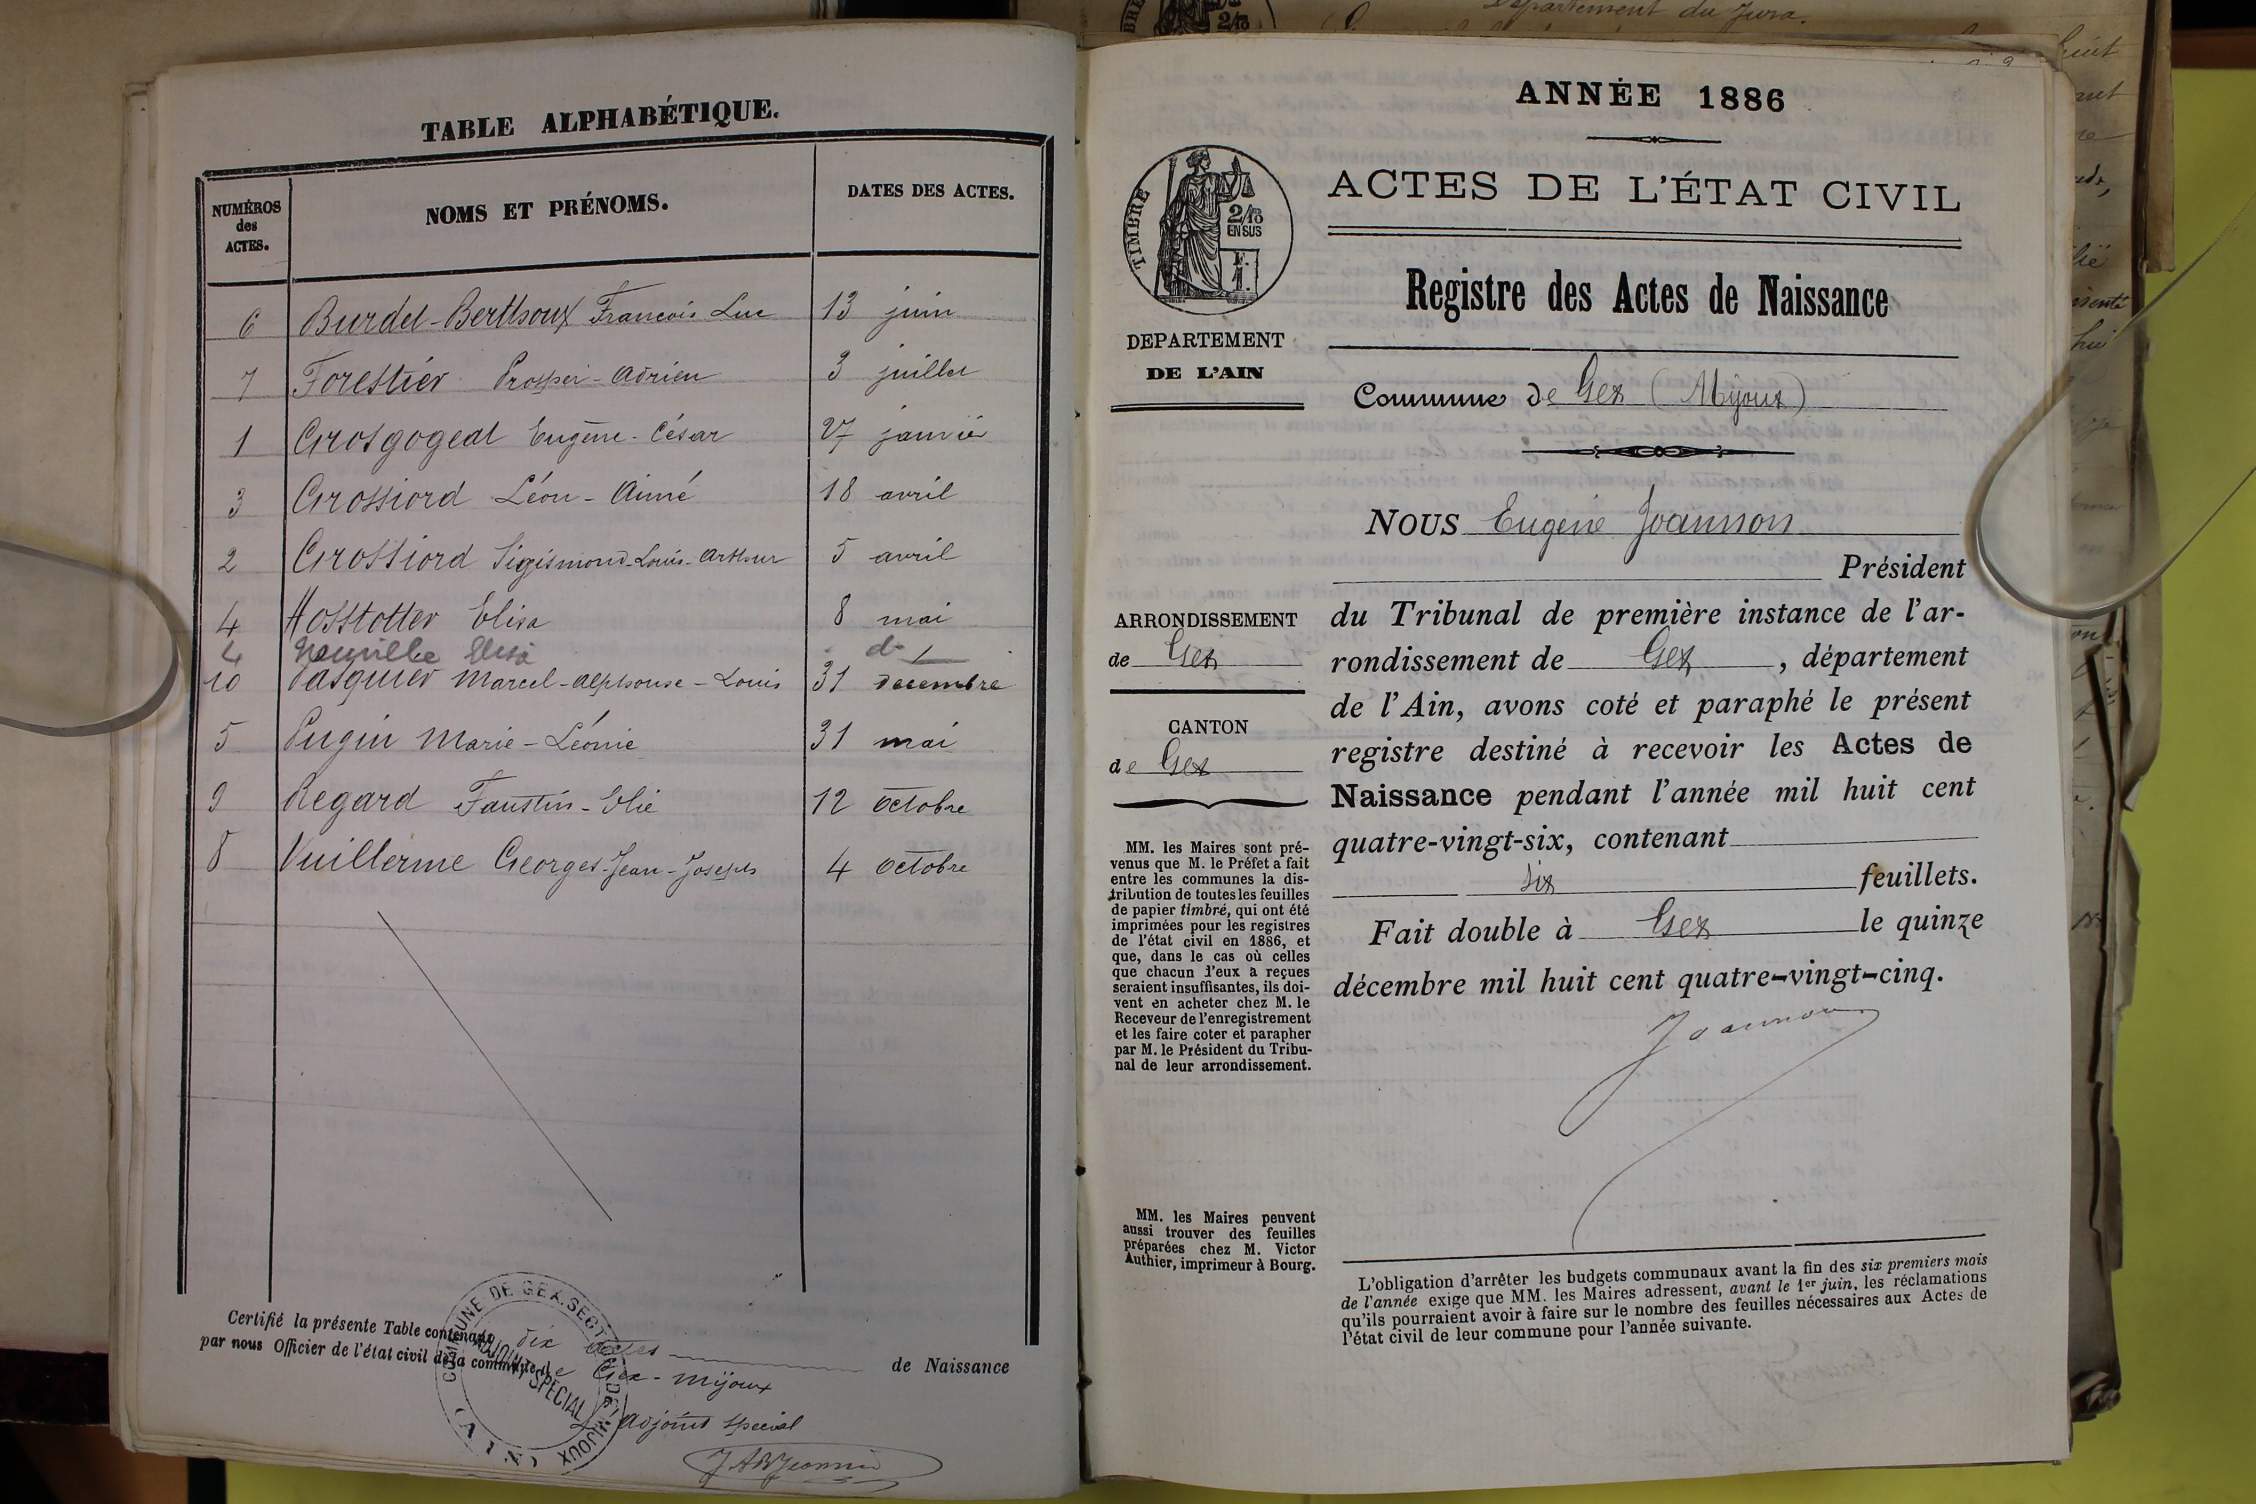 TABLE ALPHABÉTIQUE.
NUMÉROS des ACTES. NOMS ET PRÉNOMS. DATES DES ACTES.
6 Burdet-Berthoux François Luc 13 juin
7 Forestier Prosper-Adrien 3 juillet
1 Grosgogeat Eugène-César 27 janvier
3 Grossiord Léon-Aimé 18 avril
2 Grossiord Sigismond-Louis-Arthur 5 avril
4 Hosstotter Elisa 8 mai
4 Neuville Elisa do
10 Pasquier Marcel-Alphonse-Louis 31 decembre
5 Pugin Marie-Léonie 31 mai
9 Regard Faustin-Elie 12 octobre
8 Vuillerme Georges-Jean-Joseph 4 octobre
Certifié la présente Table contenant dix actes de Naissance
par nous Officier de l'état civil de la commune de Gex-Mijoux
L'adjoint spécial
COMMUNE DE GEX. SECTION DE MIJOUX
ADJOINT SPECIAL
(AIN)
ANNÉE 1886
TIMBRE
2/10
EN SUS
ACTES DE L'ÉTAT CIVIL
Registre des Actes de Naissance
DEPARTEMENT
DE L'AIN
Commune de Gex (Mijoux)
NOUS Eugène Joannon
Président
du Tribunal de première instance de l'ar-
rondissement de Gex, département
de l'Ain, avons coté et paraphé le présent
registre destiné à recevoir les Actes de
Naissance pendant l'année mil huit cent
quatre-vingt-six, contenant
six feuillets.
Fait double à Gex le quinze
décembre mil huit cent quatre-vingt-cinq.
Joannon
ARRONDISSEMENT
de Gex
CANTON
de Gex
MM. les Maires sont pré-
venus que M. le Préfet a fait
entre les communes la dis-
tribution de toutes les feuilles
de papier timbré, qui ont été
imprimées pour les registres
de l'état civil en 1886, et
que, dans le cas où celles
que chacun d'eux a reçues
seraient insuffisantes, ils doi-
vent en acheter chez M. le
Receveur de l'enregistrement
et les faire coter et parapher
par M. le Président du Tribu-
nal de leur arrondissement.
MM. les Maires peuvent
aussi trouver des feuilles
préparées chez M. Victor
Authier, imprimeur à Bourg.
L'obligation d'arrêter les budgets communaux avant la fin des six premiers mois
de l'année exige que MM. les Maires adressent, avant le 1er juin, les réclamations
qu'ils pourraient avoir à faire sur le nombre des feuilles nécessaires aux Actes de
l'état civil de leur commune pour l'année suivante.
Département du Jura.